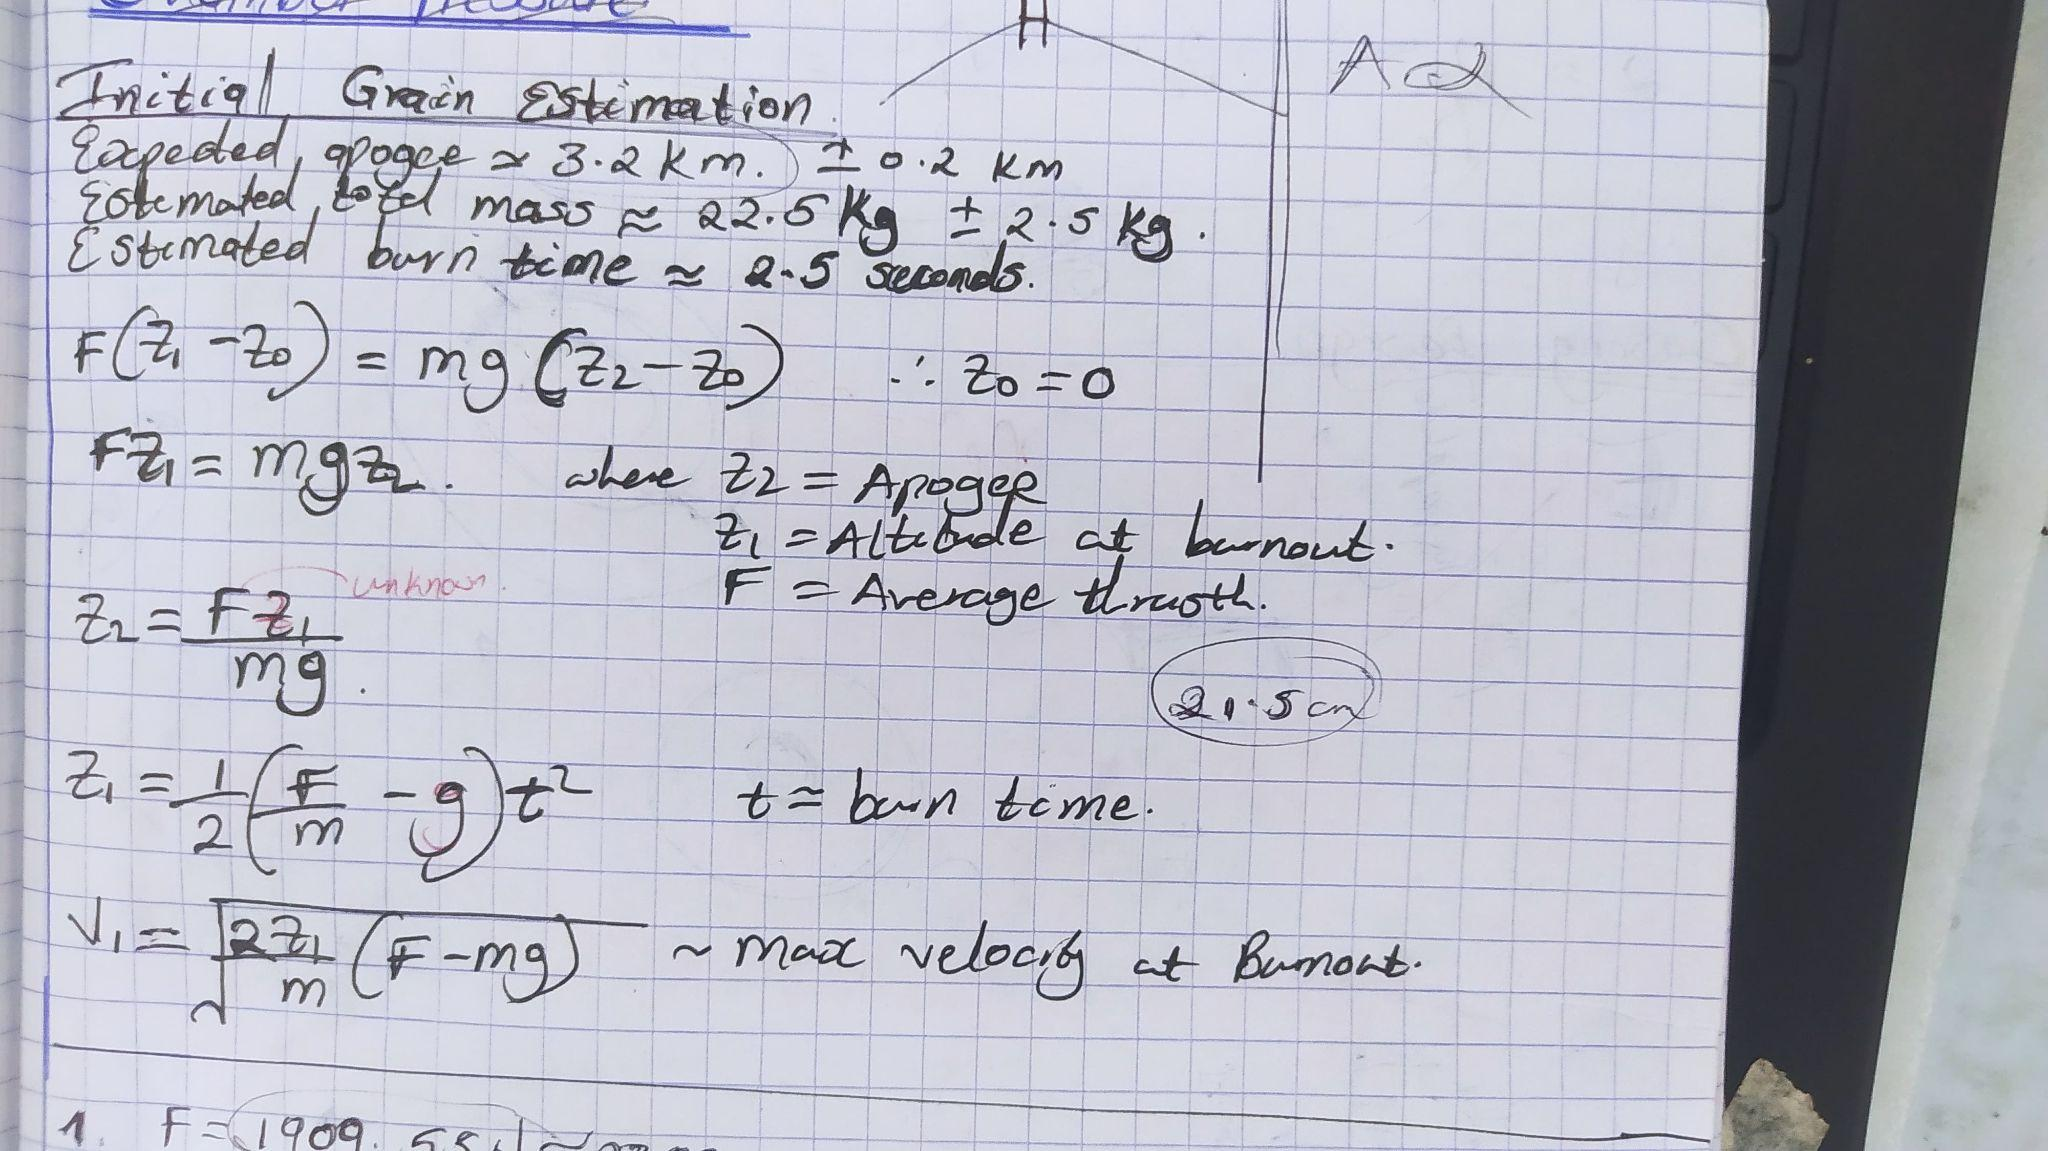 Chamber Pressure
A α
Initial Grain Estimation.
Expected apogee ≈ 3.2 km. ± 0.2 km
Estemated total mass ≈ 22.5 Kg ± 2.5 kg.
Estimated burn time ≈ 2.5 seconds.
F(Z₁ - Z₀) = mg (Z₂ - Z₀) ∴ Z₀ = 0
FZ₁ = mgZ₂. where Z₂ = Apogee
Z₁ = Altitude at burnout.
F = Average thrusth.
Z₂ = FZ₁ / mg. unknown.
21.5 cm
Z₁ = 1/2 (F/m - g) t² t = burn time.
V₁ = √(2Z₁/m (F - mg)) ~ max velocity at Burnout.
1. F = 1909.